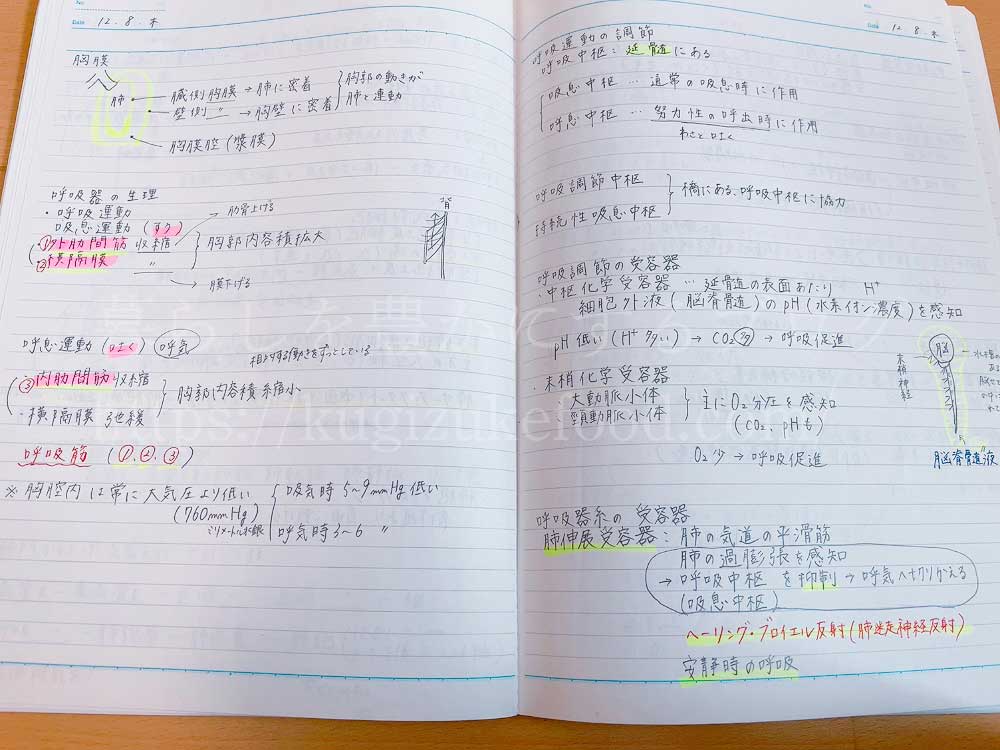 No.
Date 12. 8. 木
胸膜
肺 臓側胸膜 → 肺に密着
壁側 〃 → 胸壁に密着
胸部の動きが
肺と連動
胸膜腔 (漿膜)
呼吸器の生理
・呼吸運動
吸息運動 (すう)
肋骨上げる
・①外肋間筋 収縮
・②横隔膜 〃
胸部内容積拡大
膜下げる
背
呼息運動 (吐く) 呼気
相対する働きをずっとしている
・③内肋間筋収縮
・横隔膜 弛緩
胸部内容積縮小
呼吸筋 (①、②、③)
※ 胸腔内は常に大気圧より低い
(760mmHg)
ミリメートル水銀
吸気時 5~9mmHg低い
呼気時 3~6 〃
Date 12. 8. 木
呼吸運動の調節
呼吸中枢: 延髄にある
吸息中枢 … 通常の吸息時に作用
呼息中枢 … 努力性の呼出時に作用
わざと吐く
呼吸調節中枢
持続性吸息中枢
橋にある、呼吸中枢に協力
呼吸調節の受容器
・中枢化学受容器 … 延髄の表面あたり H⁺
細胞外液 (脳脊髄液) のpH (水素イオン濃度) を感知
pH低い (H⁺多い) → CO2多 → 呼吸促進
・末梢化学受容器
・大動脈小体
・頸動脈小体
主にO2分圧を感知
(CO2、pHも)
O2少 → 呼吸促進
脳
末梢神経
脳脊髄液
呼吸器系の受容器
肺伸展受容器: 肺の気道の平滑筋
肺の過膨張を感知
→ 呼吸中枢を抑制 → 呼気へ切りかえる
(吸息中枢)
ヘーリング・ブロイエル反射 (肺迷走神経反射)
安静時の呼吸